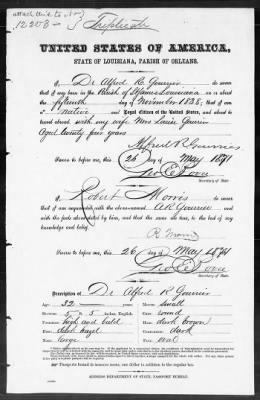 attach this to
12208
Triplicate
UNITED STATES OF AMERICA,
STATE OF LOUISIANA, PARISH OF ORLEANS.
I, Dr Alfred R. Gourrier do swear
that I was born in the Parish of Louisiana on the
fifteenth day of November 1838; that I am
a native and Loyal Citizen of the United States, and about to
travel abroad with my wife Mrs Louise Gourrier
Aged twenty five years
Alfred R Gourrier
Sworn to before me, this 26 day of May 1871
Geo E Bovee
Secretary of State
I, Robert Morris do swear
that I am acquainted with the above-named A R Gourrier and
with the facts above stated by him, and that the same are true, to the best of my
knowledge and belief.
R Morris
Sworn to before me, this 26 day of May 1871
Geo E Bovee
Secretary of State
Description of Dr Alfred R Gourrier
Age: 32 Mouth: small
Stature: 5 5 inches, English Chin: round
Forehead: high and bald Hair: dark brown
Eyes: dark hazel Complexion: dark
Nose: large Face: oval
Passport be issued to insure same, one dollar in addition to the regular tax.
ADDRESS DEPARTMENT OF STATE, PASSPORT BUREAU.